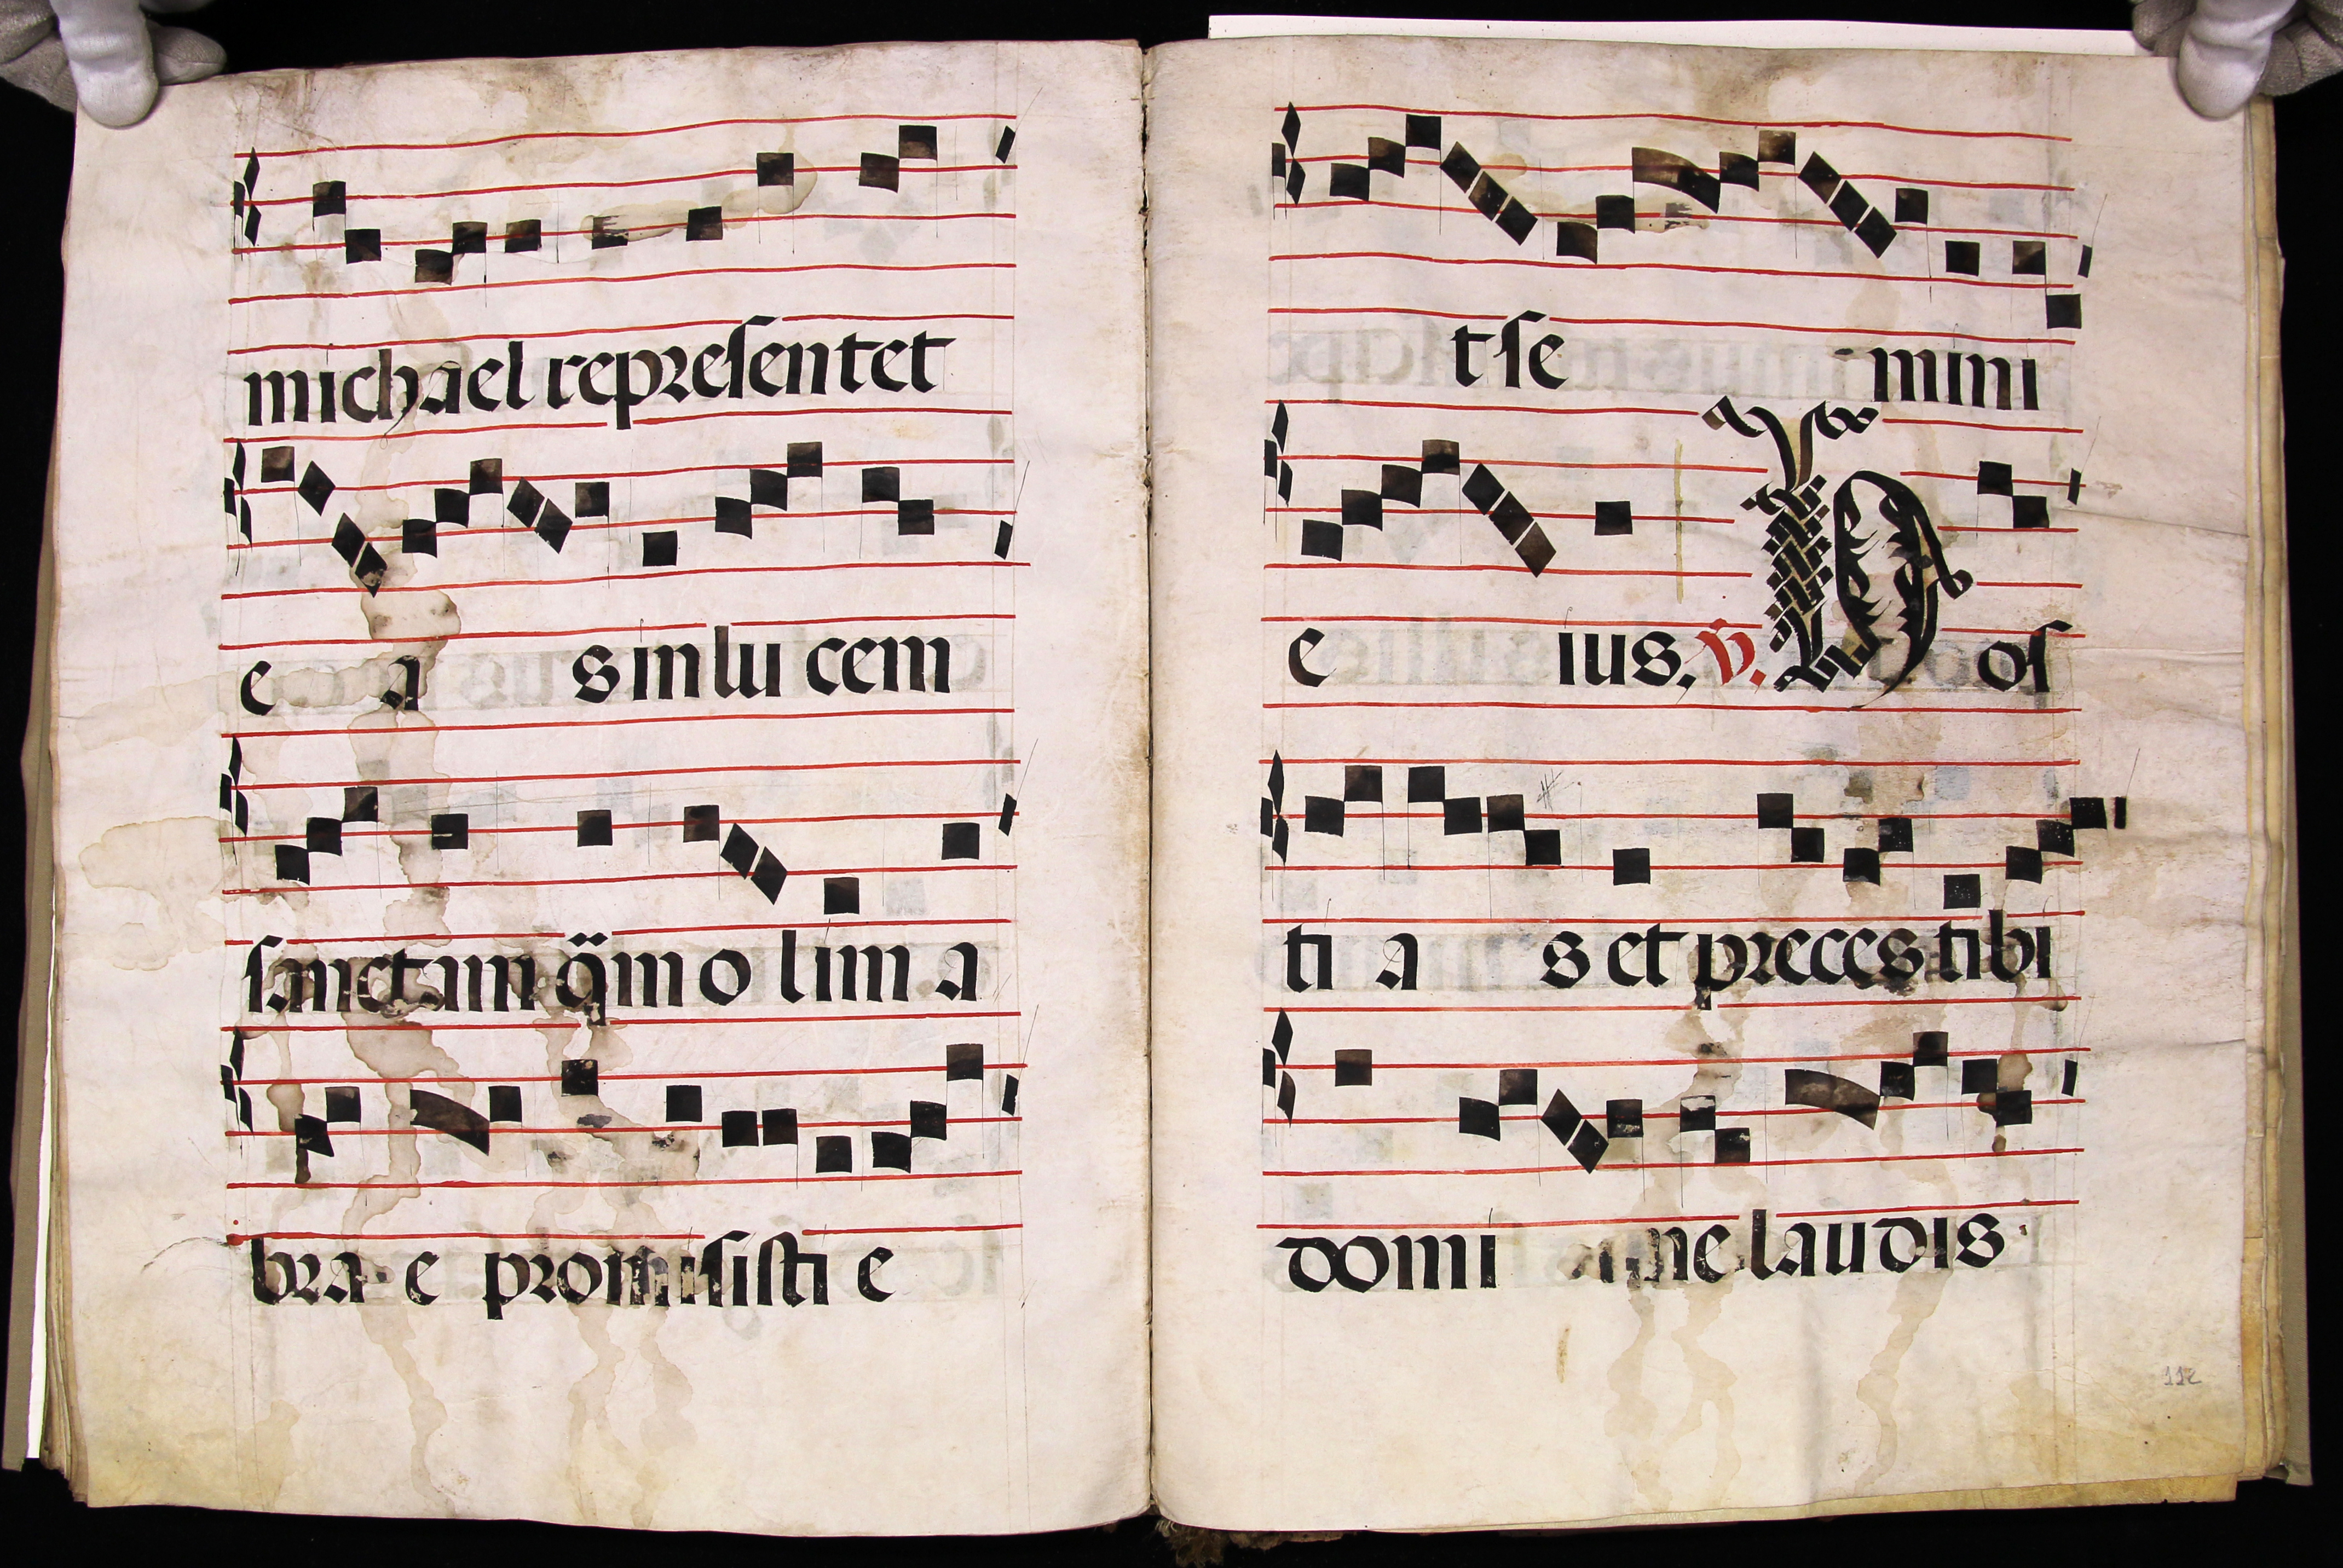 michael representet
e a s in lu cem
sanctam q̃m o lim a
bra e promisisti e
t se mini
e ius. v̄. H os
ti a s et preces tibi
domi ne laudis
112